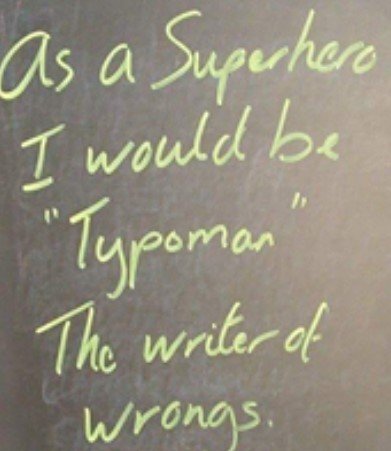 As a Superhero
I would be
"Typoman"
The writer of
wrongs.